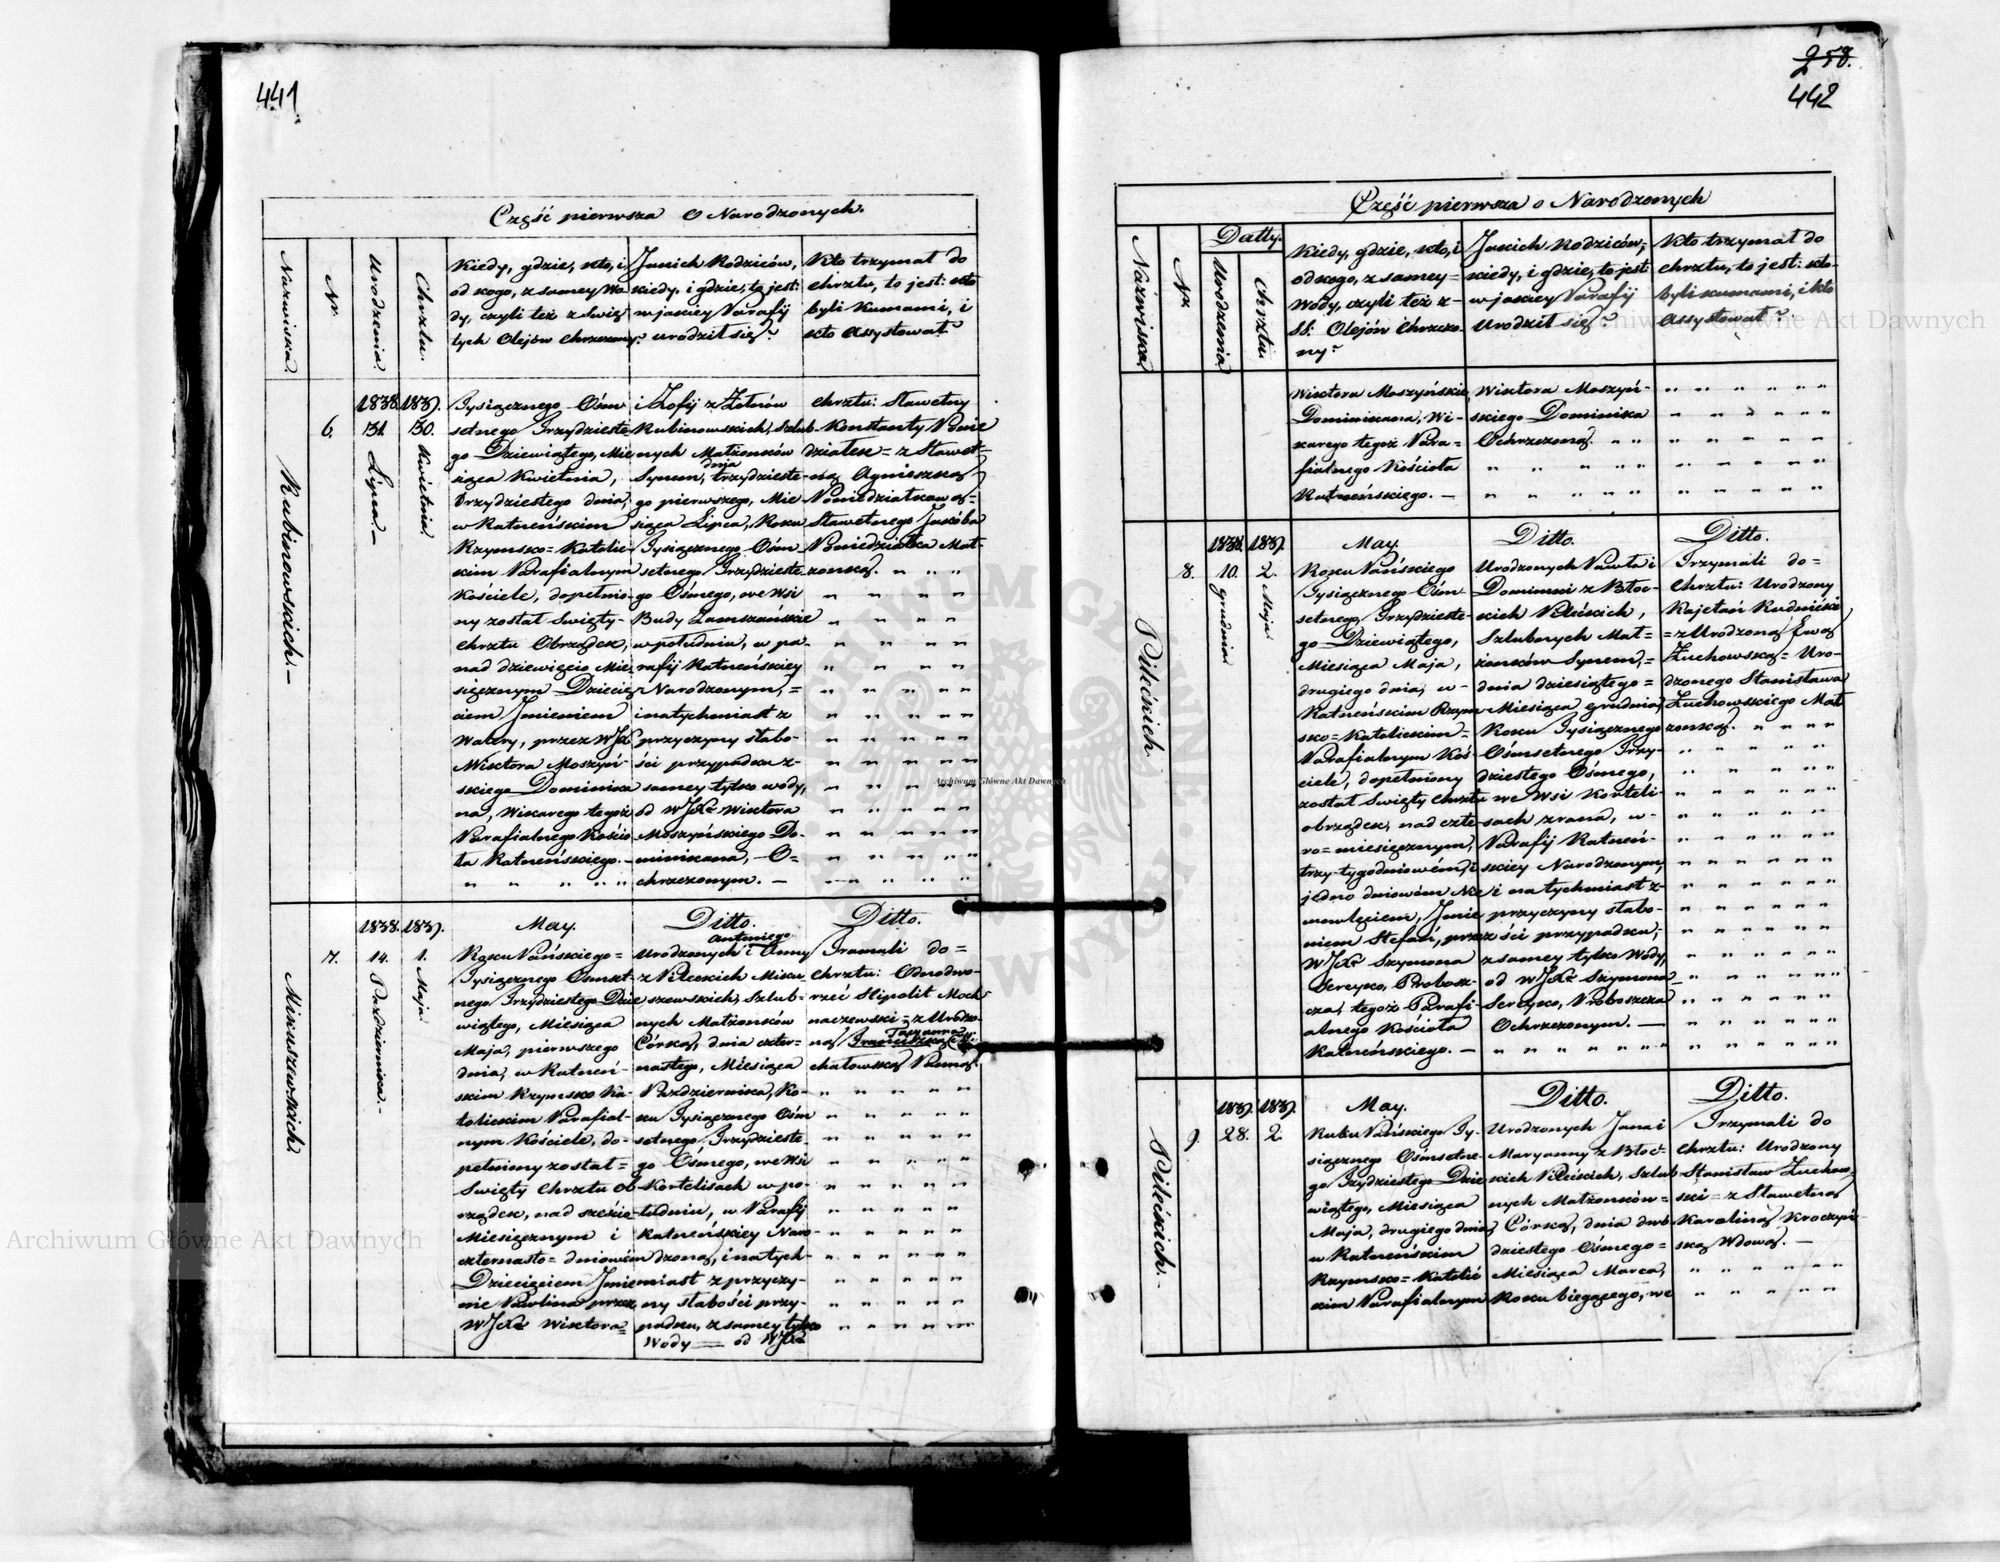 441
Część pierwsza o Narodzonych.
Nazwiska.
Nr.
Urodzenia.
Chrztu.
Kiedy, gdzie, kto, i
od kogo, z samey Wo-
dy, czyli też z Świę-
tych Olejów Chrzczony?
Jakich Rodziców,
kiedy, i gdzie, to jest:
w jakiey Parafij
urodził się?
Kto trzymał do
chrztu, to jest: kto
byli Kumami, i
kto Assystował?
Rubinowskich.-
6.
1838.
31.
Lipca.-
1839.
30.
Kwietnia.
Tysiącznego Ośm
setnego Trzydzieste
go Dziewiątego, Mie
siąca Kwietnia,
trzydziestego dnia,
w Ratneńskim
Rzymsko=Katolic-
kim Parafialnym
Kościele, dopełnio-
ny został Święty-
Chrztu Obrządek,
nad dziewięcio Mie
sięcznym Dziecię-
ciem Imieniem
Walery, przez WJX
Wiktora Moszyń-
skiego Dominika
na, Wikarego tegoż
Parafialnego Kościo
ła Ratneńskiego.-
" " " " "
i Zofij z
Rubinowskich, szlub-
nych Małżonków
Synem, dnia trzydzieste-
go pierwszego, Mie
siąca Lipca, Roku
Tysiącznego Ośm
setnego Trzydzieste
go Ósmego, we Wsi
Budy Zamszańskie
w południu, w pa-
rafij Ratneńskiey
Narodzonym,=
i natychmiast z
przyczyny słabo-
ści przypadku z-
samey tylko wody,
od WJX. Wiktora
Moszyńskiego Do-
minikana, -O=
chrzczonym. —
chrztu: Sławetny
Konstanty Ponie
działek= z Sławet=
ną Agnieszką
Poniedziałkową=
Sławetnego Jakóba
Poniedziałka Mał-
żonką. " " "
" " " "
" " " "
" " " "
" " " "
" " " " "
" " " " "
" " " " "
" " " " "
" " " " "
" " " " "
" " " " "
" " " " "
" " " " "
Mikuszewskich.
7.
1838.
14.
Października.-
1839.
1.
Maja
May.
Roku Pańskiego=
Tysiącznego Ośmset-
nego Trzydziestego Dzie
wiątego, Miesiąca
Maja, pierwszego
dnia, w Ratneń-
skim Rzymsko Ka-
tolickim Parafial-
nym Kościele, do-
pełniony został=
Święty Chrztu Ob-
rządek, nad sześcio-
Miesięcznym i
czternasto=dniowém
Dziecięciem Imie-
nie Paulina przez
WJX. Wiktora=
Ditto.
Urodzonych Antoniego i Anny
z Pileckich Miku
szewskich, Szlub-
nych Małżonków
Córką, dnia czter-
nastego, Miesiąca
Października, Ro-
ku Tysiącznego Ośm
setnego Trzydzieste
go Ósmego, we Wsi
Kortelisach w po-
łudniu, w Parafij
Ratneńskiey Naro-
dzoną, i natych-
miast z przyczy-
ny słabości przy-
padku, z samey tylko
Wody — od WJX.
Ditto.
Tramali do=
Chrztu: Odnodwo-
rzec Hipolit Moch-
naczewski= z Urodzo-
ną
chałowską Panną.
" " " " "
" " " " "
" " " " "
" " " " "
" " " " "
" " " " "
" " " " "
" " " " "
" " " " "
" " " " "
" " " " "
258.
442
Część pierwsza o Narodzonych
Nazwiska
Nr.
Datty.
Urodzenia
Chrztu.
Kiedy, gdzie, kto, i
od kogo, z samey=
Wody, czyli też z-
SS: Olejów Chrzczo-
ny?
Jakich Rodziców,
kiedy, i gdzie, to jest:
w jakiey Parafij
Urodził się?
Kto trzymał do
chrztu, to jest: kto
byli kumami, i kto
Assystował?
Wiktora Moszyńskie
Dominikana, Wi-
karego tegoż Para=
fialnego Kościoła
Ratneńskiego. —
Wiktora Moszyń-
skiego Dominika
Ochrzczoną. " "
" " " " "
" " " " "
" " " " " "
" " " " " "
" " " " "
" " " " "
" " " " "
Pilścickich.
8.
1838.
10.
grudnia
1839.
2.
Maja
May.
Roku Pańskiego
Tysiącznego Ośm-
setnego, Trzydzieste-
go Dziewiątego,
Miesiąca Maja,
drugiego dnia, w-
Ratneńskim Rzym
sko=Katolickim=
Parafialnym Koś-
ciele, dopełniony
został Święty Chrztu
obrządek, nad czte-
ro=miesięcznym,
trzy-tygodniowém, i
jedno dniowém Nie
mowlęciem, Imie
niem Stefan, przez
WJX. Szymona
Sereyko, Probosz-
cza, tegoż Parafi-
alnego Kościoła
Ratneńskiego. —
Ditto.
Urodzonych Pawła i
Dominiki z Błoc-
kich Pilścickich,
Szlubnych Mał=
żonków Synem,=
dnia dziesiątego=
Miesiąca grudnia,
Roku Tysiącznego
Ośmsetnego Trzy-
dziestego Ósmego,
we Wsi Korteli-
sach z rana, w-
Parafij Ratneń-
skiey Narodzonym,
i natychmiast z-
przyczyny słabo-
ści przypadku,
z samey tylko Wody,
od WJX. Szymona
Sereyko, Proboszcza
Ochrzczonym. —
" " " " " " "
Ditto.
Trzymali do=
Chrztu: Urodzony
Kajetan Rudnicki
=z Urodzoną Ewą
Żuchowską= Uro-
dzonego Stanisława
Żuchowskiego Mał
żonką. " " " "
" " " " " "
" " " " " "
" " " " " "
" " " " " "
" " " " " "
" " " " " "
" " " " " "
" " " " " "
" " " " " "
" " " " " "
" " " " " "
" " " " " "
" " " " " "
" " " " " "
Pilścickich.-
9.
1839.
28.
1839.
2.
May.
Roku Pańskiego Ty-
siącznego Ośmsetne-
go Trzydziestego Dzie
wiątego, Miesiąca
Maja, drugiego dnia,
w Ratneńskim
Rzymsko=Katolic
kim Parafialnym
Ditto.
Urodzonych Jana i
Maryanny z Błoc-
kich Pilścickich, Szlub
nych Małżonków=
Córką, dnia dwó
dziestego Ósmego=
Miesiąca Marca,
Roku biegącego, we
Ditto.
Trzymali do
Chrztu: Urodzony
Stanisław Żuchow-
ski= z Sławetną
Karoliną Kroczyń-
ską Wdową. —
" " " " " "
" " " " " "
Archiwum Główne Akt Dawnych
Archiwum Główne Akt Dawnych
Archiwum Główne Akt Dawnych
ARCHIWUM GŁÓWNE AKT DAWNYCH